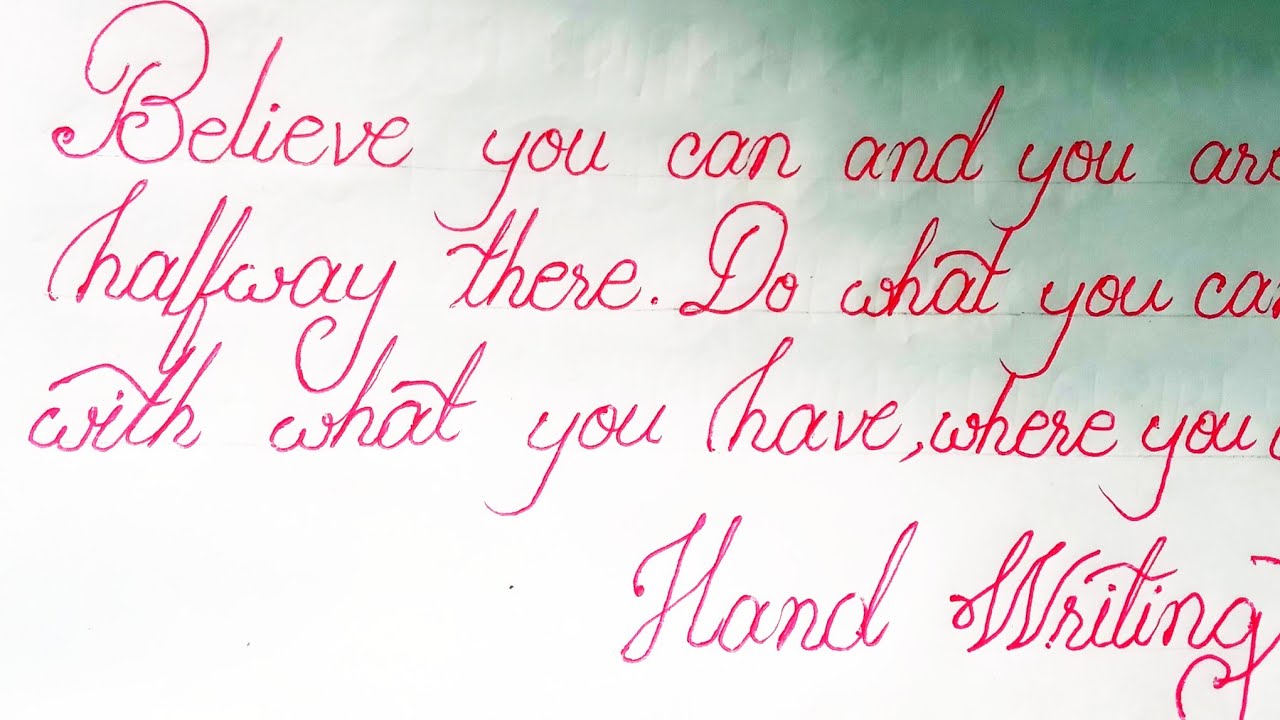 Believe you can and you are
halfway there. Do what you can
with what you have, where you
Hand Writing